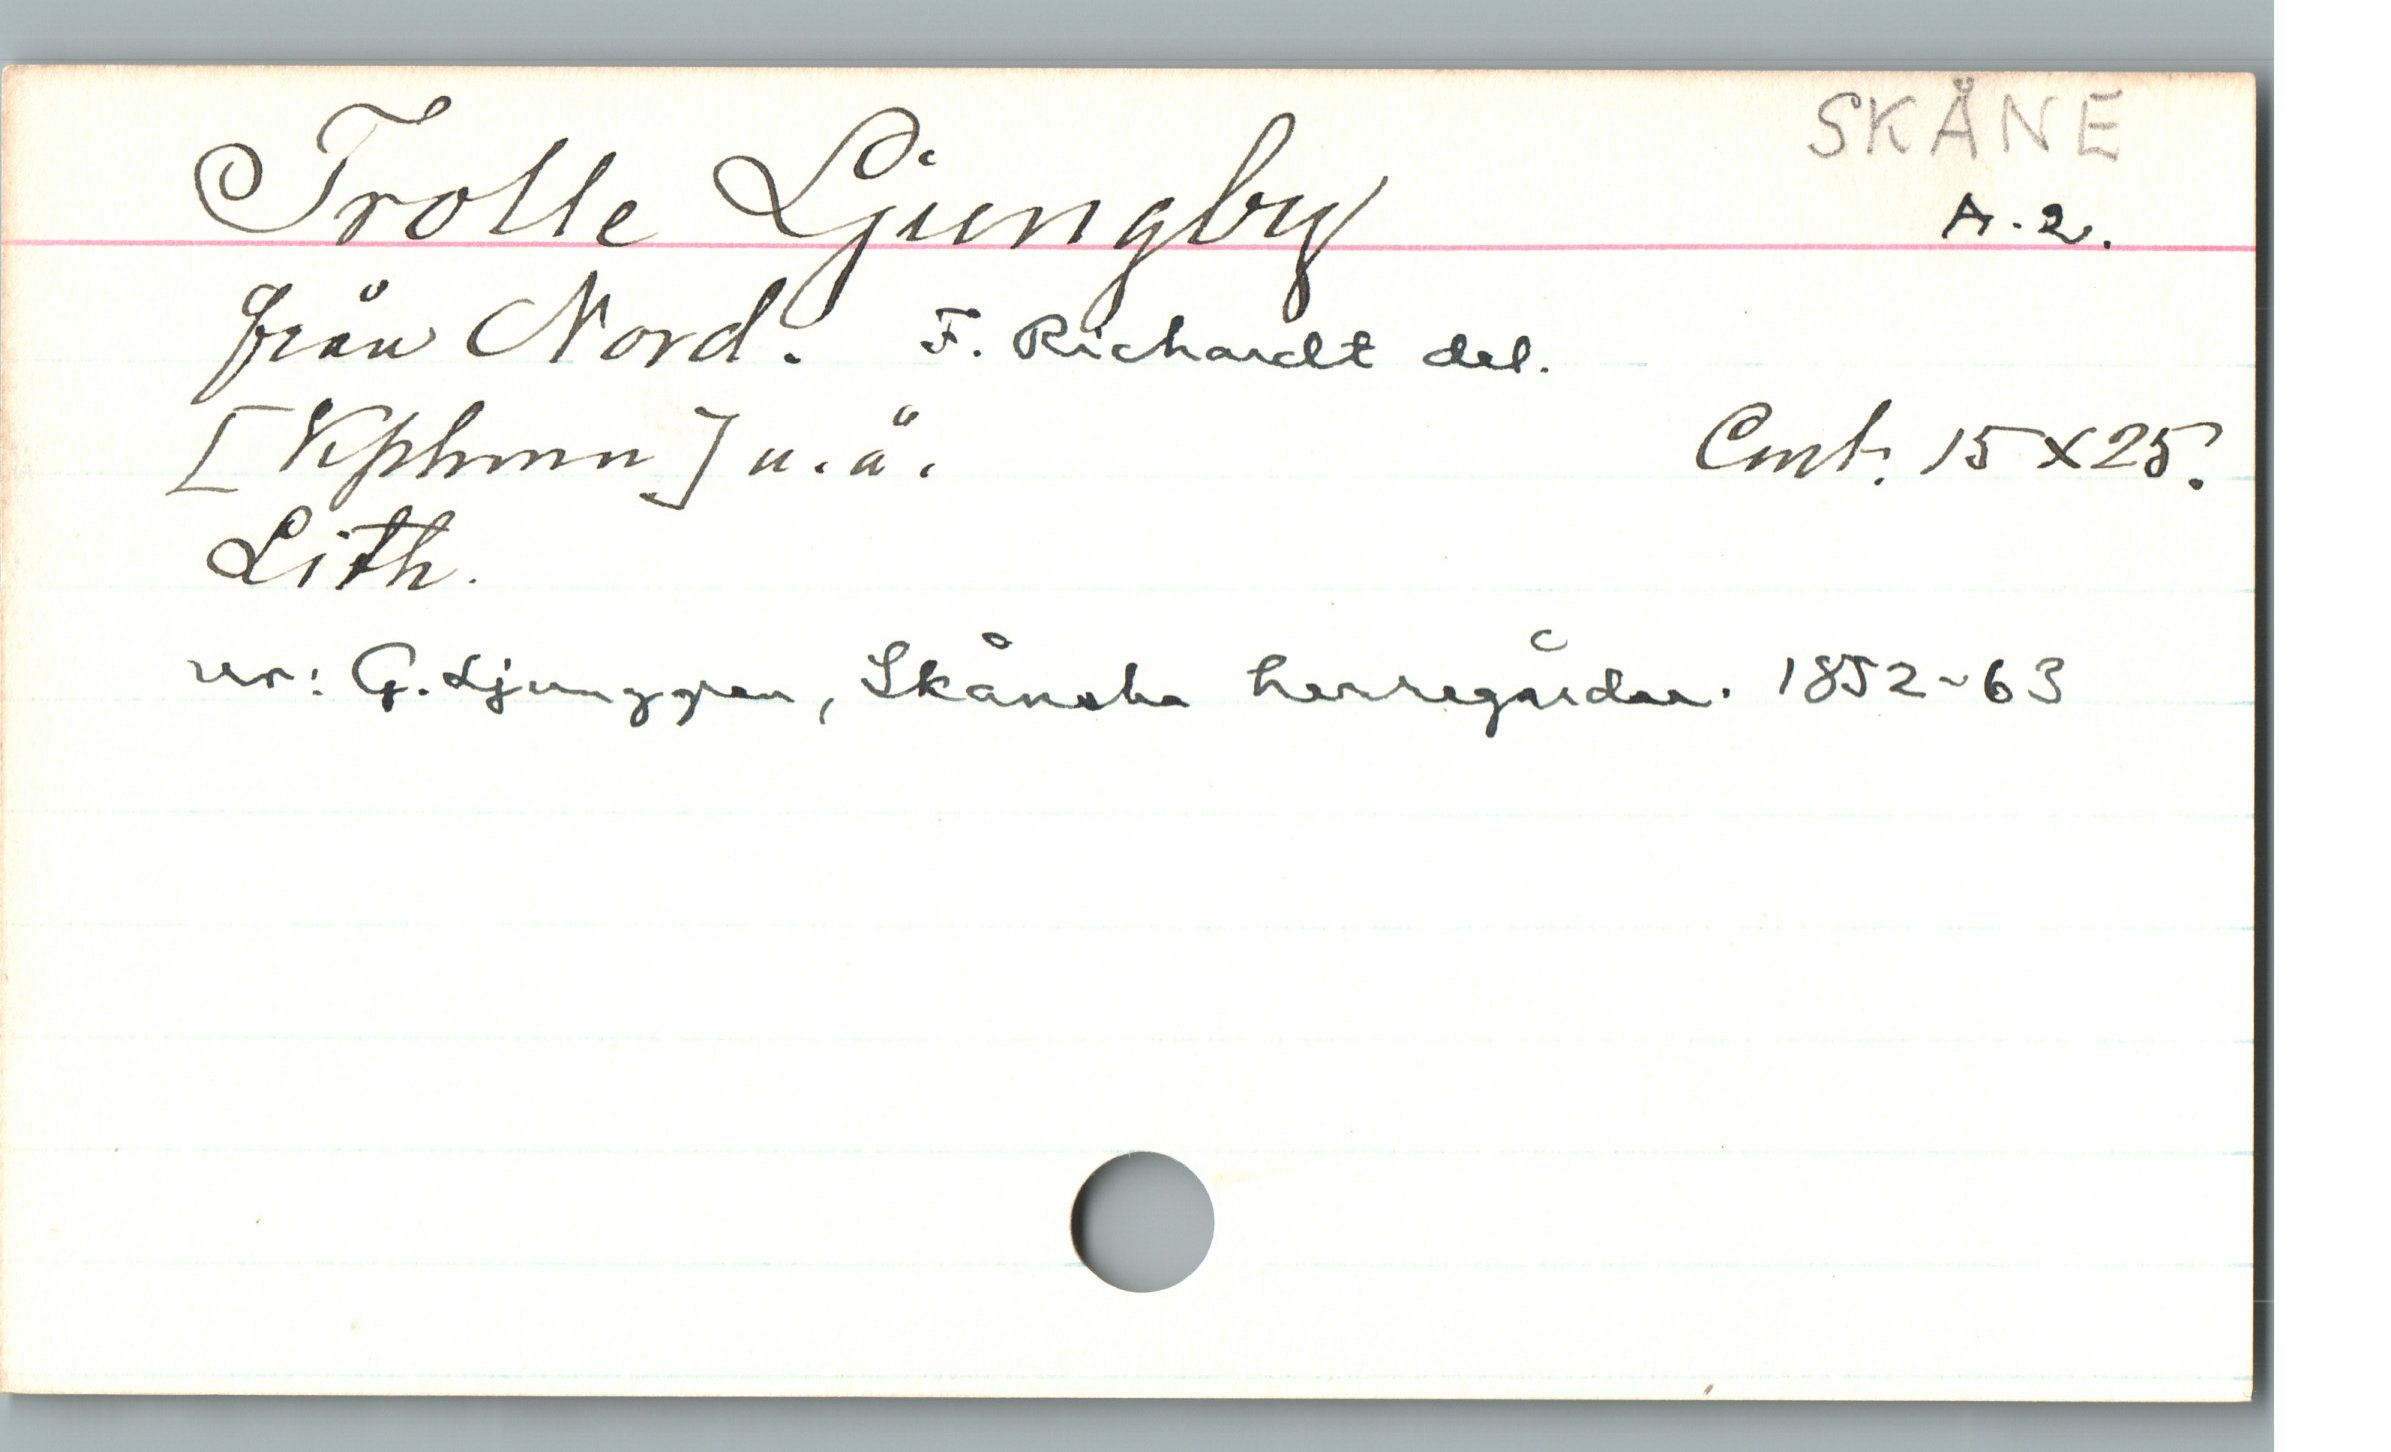 SKÅNE
Trolle Ljungby
A.2.
från Nord. F. Richardt del.
[Kphmn] u.å. Cmt. 15x25.
Lith.
ur: G. Ljunggren, Skånska herregårdar. 1852-63